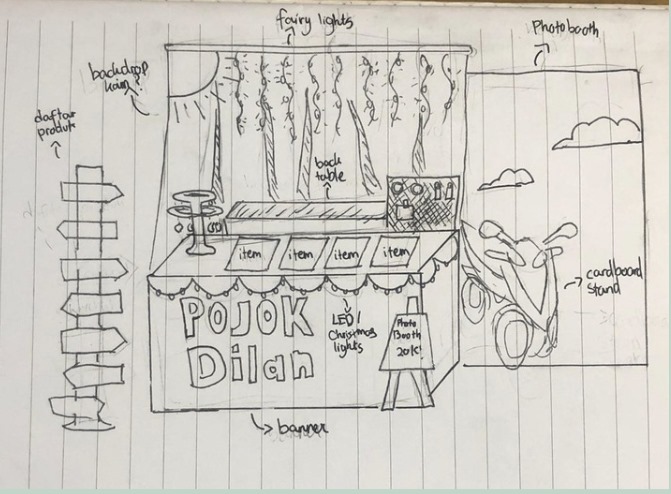 fairy lights
Photobooth
backdrop
kain?
daftar
produk
back
table
item
item
item
item
cardboard
stand
POJOK
Dilan
LED/
Christmas
lights
Photo
Booth
20K
banner